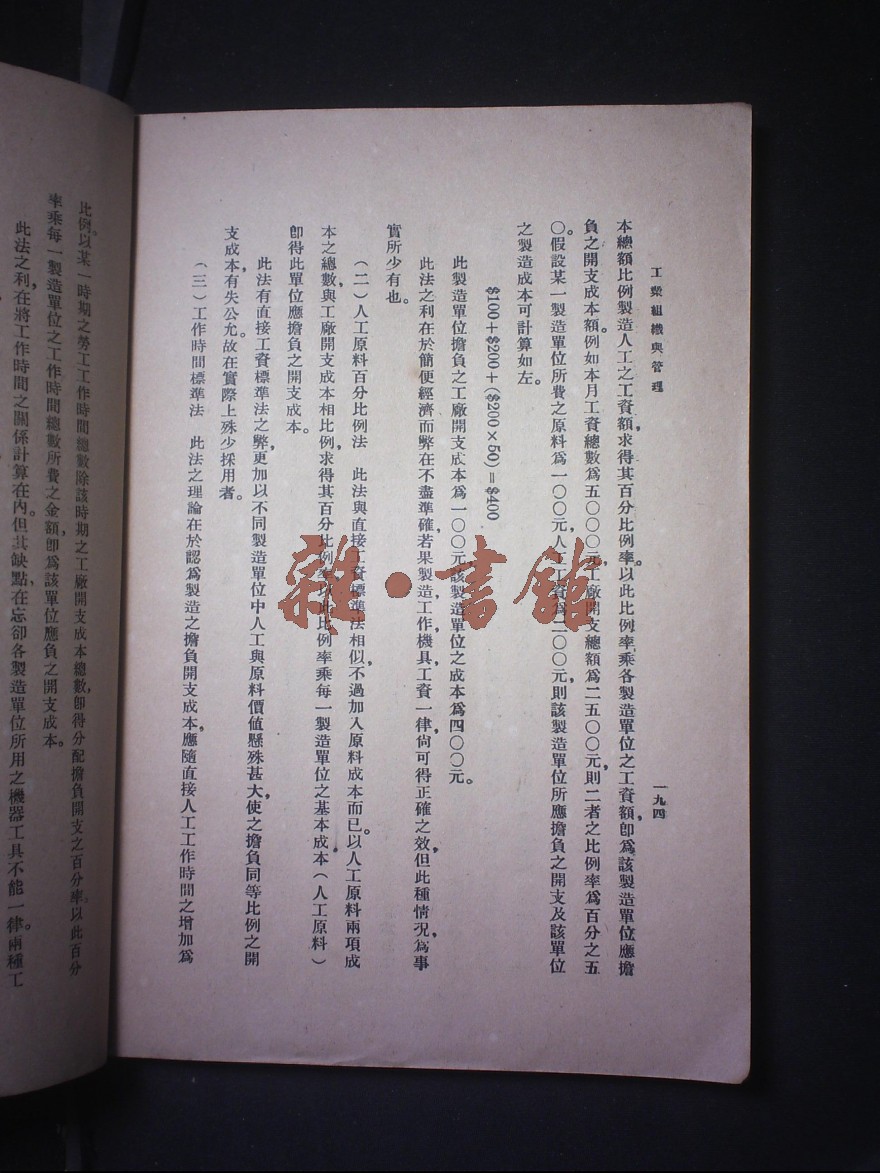 工業組織與管理
一九四
本總額比例製造人工之工資額，求得其百分比例率。以此比例率乘各製造單位之工資額，卽爲該製造單位應擔
負之開支成本額例如本月工資總數爲五〇〇〇元，工廠開支總額爲二五〇〇元，則二者之比例率爲百分之五
〇。假設某一製造單位所費之原料爲一〇〇元，人工工資爲二〇〇元，則該製造單位所應擔負之開支及該單位
之製造成本可計算如左。
$100＋$200＋($200×50)＝$400
此製造單位擔負之工廠開支成本爲一〇〇元該製造單位之成本爲四〇〇元。
此法之利在於簡便經濟而弊在不盡準確若果製造工作機具，工資一律，尙可得正確之效但此種情况，爲事
實所少有也。
（二）人工原料百分比例法　此法與直接工資標準法相似，不過加入原料成本而已。以人工原料兩項成
本之總數，與工廠開支成本相比例，求得其百分比例率，以此比例率乘每一製造單位之基本成本，（人工原料）
卽得此單位應擔負之開支成本。
此法有直接工資標準法之弊，更加以不同製造單位中人工與原料價値懸殊甚大，使之擔負同等比例之開
支成本，有失公允。故在實際上殊少採用者。
（三）工作時間標準法　此法之理論在於認爲製造之擔負開支成本，應隨直接人工工作時間之增加爲
比例。以某一時期之勞工工作時間總數除該時期之工廠開支成本總數，卽得分配擔負開支之百分率。以此百分
率乘每一製造單位之工作時間總數所費之金額，卽爲該單位應負之開支成本。
此法之利，在將工作時間之關係計算在內，但其缺點在忘卻各製造單位所用之機器工具不能一律。兩種工
雜・書館